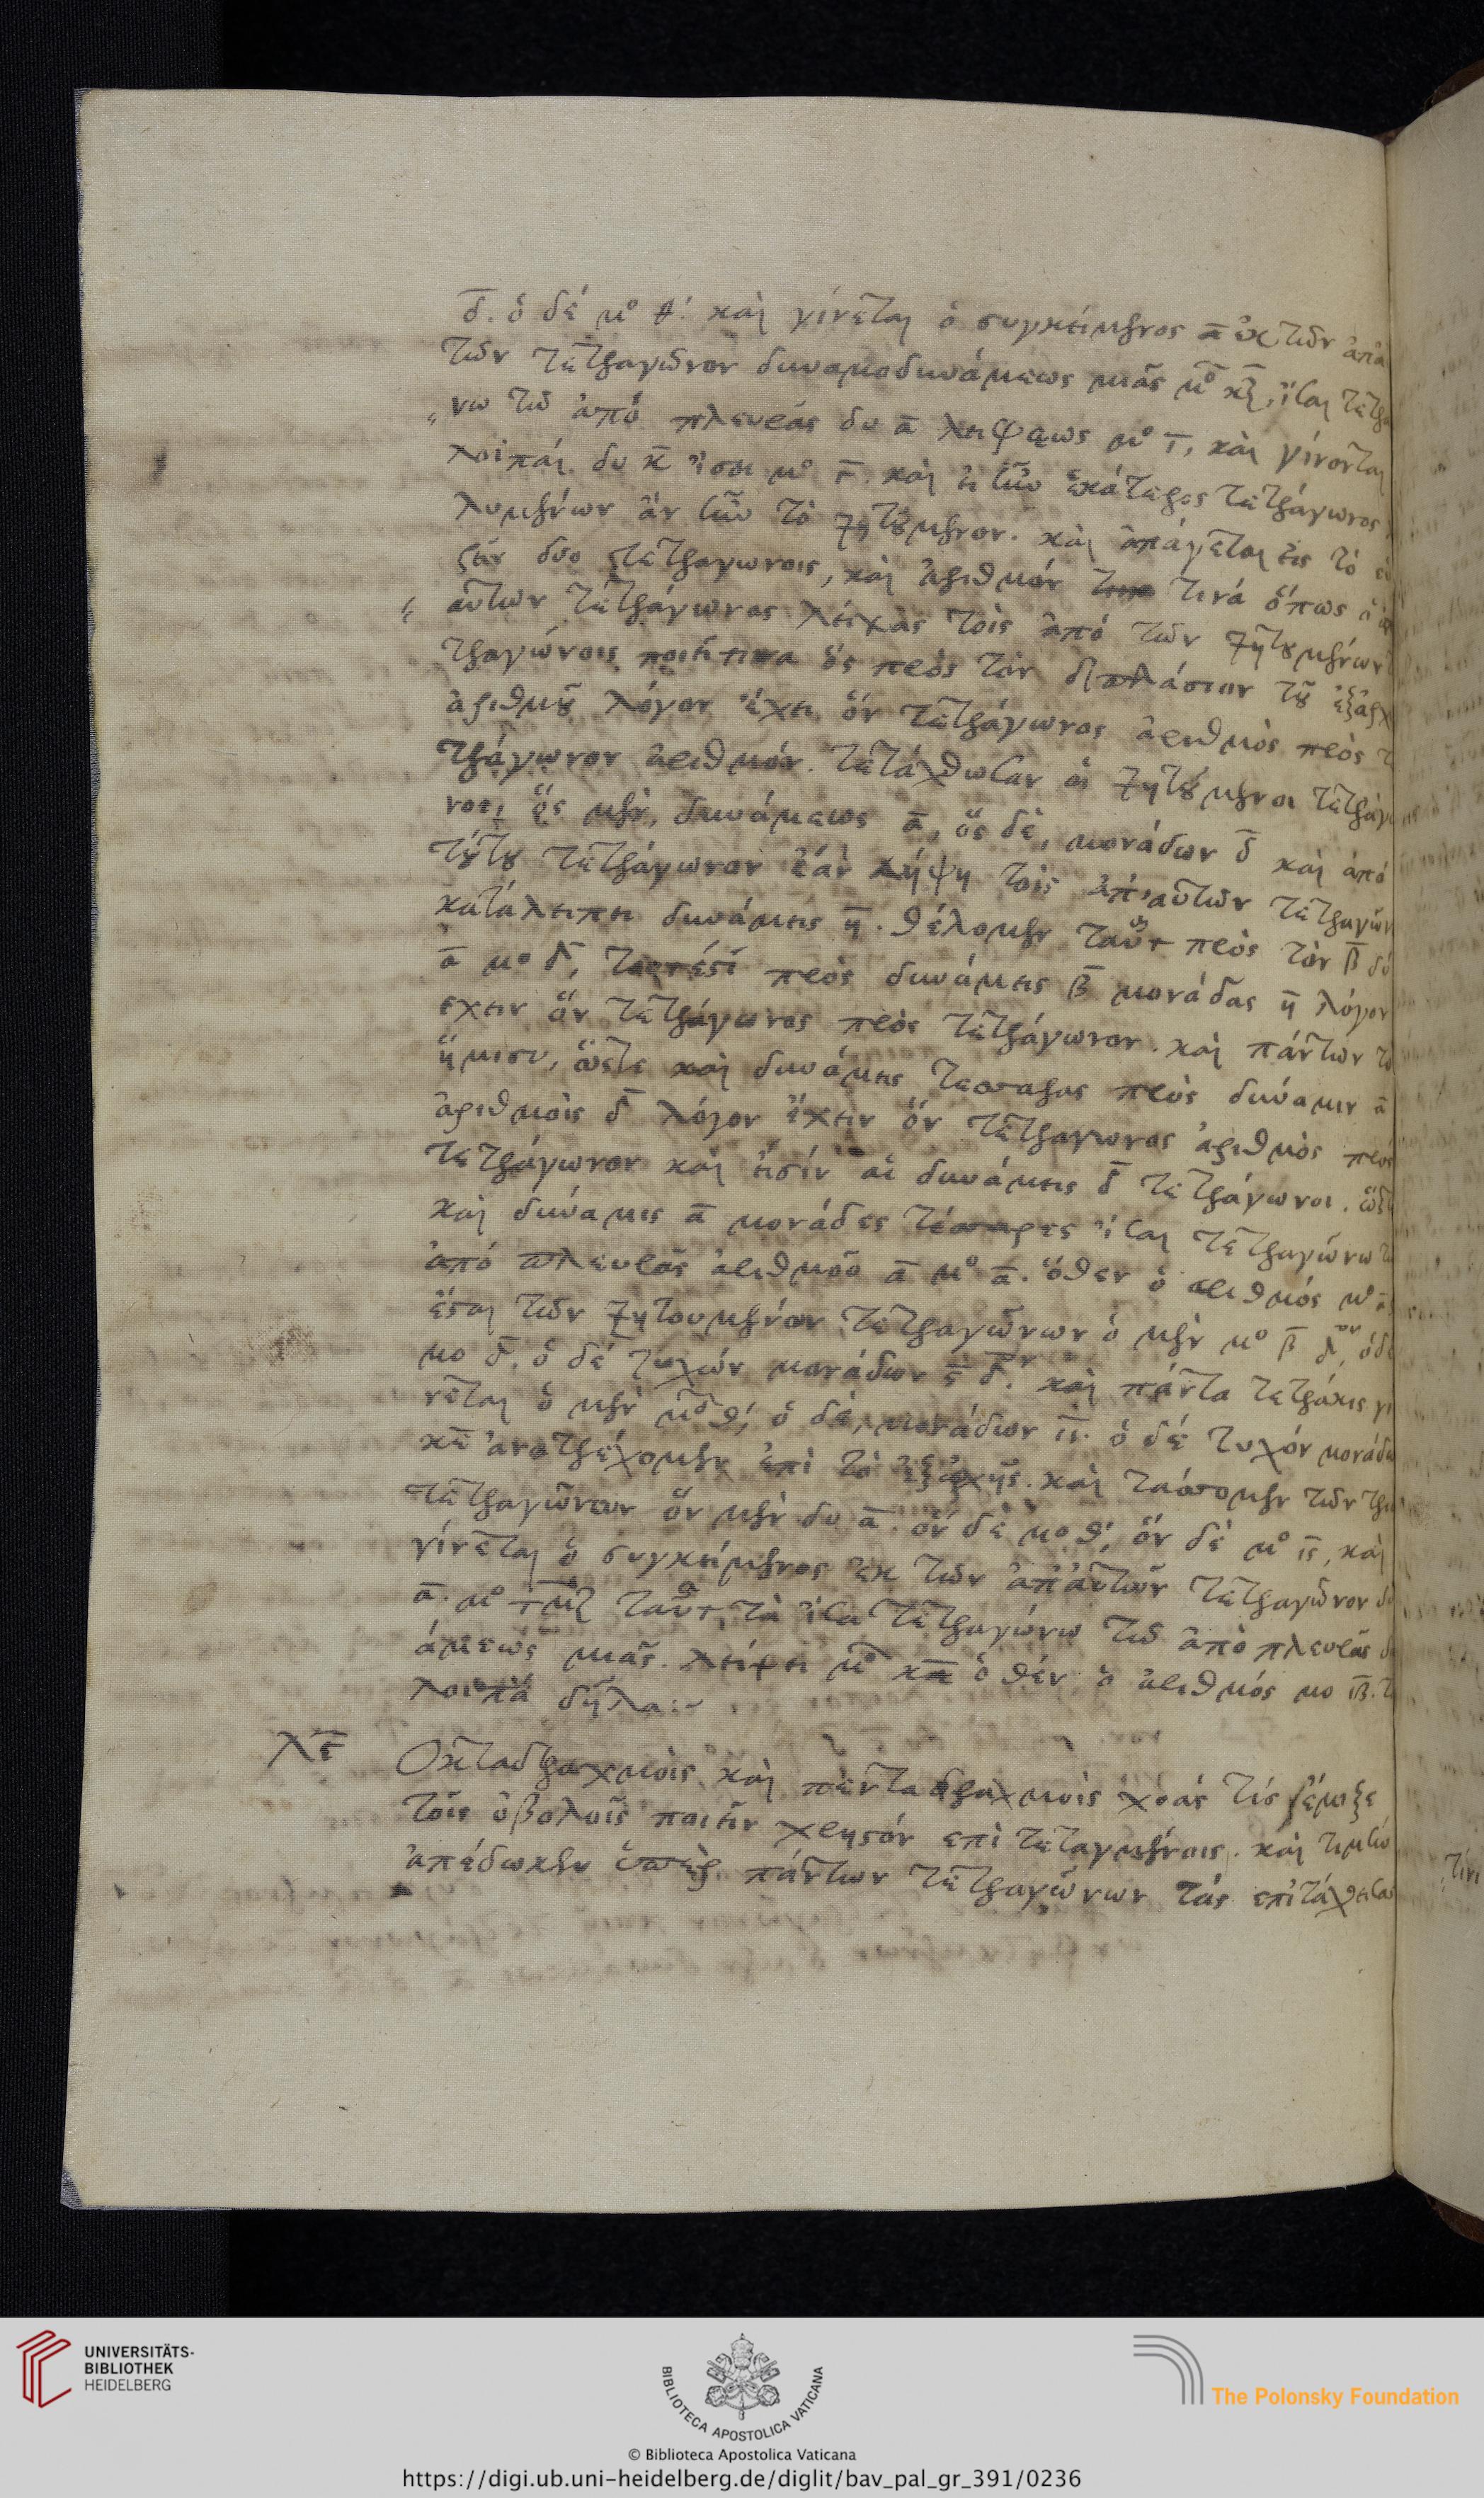 δ̅. ὁ δέ μ̊ θ. καὶ γίνεται ὁ συγκείμενος ἐκ τῶν ἀπ' α
τῶν τετραγώνων δυναμοδυνάμεως μιᾶς μ̊ ἴσαι τετρα
νω τῷ ἀπό πλευρᾶς δυ α̅ λείψεως μ̊ ι̅, καὶ γίνονται
λοιπαί δυ κ̅ ἴσαι μ̊ γ̅. καὶ εἰ ἦν ἑκάτερος τετράγωνος
λυμένων ἄν ἦν τὸ ζητούμενον. καὶ ἀπάγεται εἰς τὸ εὑ
ρεῖν δύο τετραγώνοις, καὶ ἀριθμόν τινά ὅπως ὁ ἀπ
αὐτῶν τετράγωνος λείψας τοῖς ἀπό τῶν ζητουμένων
τραγώνοις ποιεῖ τινα ὅς πρὸς τὸν διπλάσιον τοῦ ἐξ ἀρχ
ἀριθμοῦ λόγον ἔχει ὅν τετράγωνος ἀριθμὸς πρὸς τ
τράγωνον ἀριθμόν. τετάχθωσαν οἱ ζητούμενοι τετράγω
νοι, ὅς μέν, δυνάμεως α̅, ὅς δέ, μονάδων δ̅ καὶ ἀπό
τούτου τετράγωνον ἐάν λήψῃ τοῖς ἀπ' αὐτῶν τετραγών
καταλείπει δυνάμεις η̅. θέλομεν ταύτ πρὸς τὸν β̅ δύ
α̅ μ̊ δ̅, τουτέστι πρὸς δυνάμεις β̅ μονάδας η̅ λόγον
εχειν ὅν τετράγωνος πρὸς τετράγωνον. καὶ πάντων τὸ
ἥμισυ, ὥστε καὶ δυνάμεις τέσσαρας πρὸς δύναμιν α̅
ἀριθμοῖς δ̅ λόγον ἔχειν ὅν τετράγωνος ἀριθμὸς πρὸς
τετράγωνον καὶ εἰσίν αἱ δυνάμεις δ̅ τετράγωνοι. ὥστε
καὶ δύναμις α̅ μονάδες τέσσαρες ἴσαι τετραγώνω τῷ
ἀπό πλευρᾶς ἀριθμοῦ α̅ μ̊ α̅. ὅθεν ὁ ἀριθμός μ̊ α̅
ἔσται τῶν ζητουμένων τετραγώνων ὁ μέν μ̊ β̅ δ̅, ὁ δέ
μο δ̅. ὁ δέ τυχών μονάδων ϛ̅ δ̅. καὶ πάντα τετράκις γί
νεται ὁ μέν μ̊ θ, ὁ δέ, μονάδων ιϛ̅. ὁ δέ τυχόν μονάδω
κε̅ ἀνατρέχομεν ἐπὶ τὸ ἐξ ἀρχῆς. καὶ τάσσομεν τῶν τρι
τετραγώνων ὅν μέν δυ α̅. ὅν δέ μο θ, ὅν δέ μ̊ ιϛ̅, καὶ
γίνεται ὁ συγκείμενος ἐκ τῶν ἀπ' αὐτῶν τετραγώνων δ
α̅. μ̊ τλζ̅ ταῦτ τὰ ἴσα τετραγώνω τῷ ἀπὸ πλευρᾶς δ
άμεως μιᾶς. λείψει μ̊ κε̅ ὅθεν ὁ ἀριθμός μο ιβ̅. τ
λοιπά δῆλα:~
λε̅ Ὀκταδραχμοῖς καὶ πενταδραχμοῖς χοάς τίς ἔμιξε
τοῖς ὀβολοῖς ποιεῖν χρηστόν ἐπὶ τεταγμένοις. καὶ τιμήν
ἀπέδωκεν ὑπὲρ πάντων τετραγώνων τάς ἐπιτάχθεισα
UNIVERSITÄTS-
BIBLIOTHEK
HEIDELBERG
BIBLIOTECA APOSTOLICA VATICANA
The Polonsky Foundation
© Biblioteca Apostolica Vaticana
https://digi.ub.uni-heidelberg.de/diglit/bav_pal_gr_391/0236